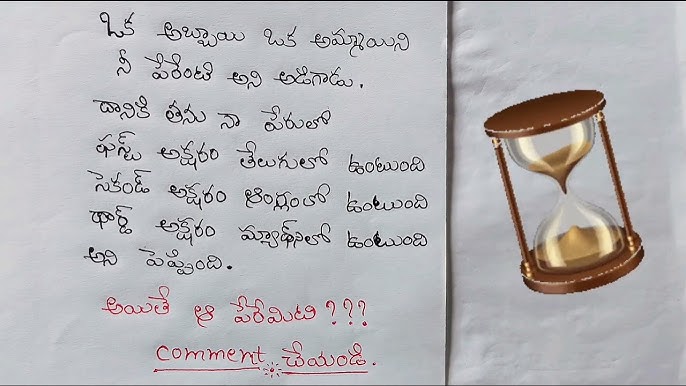 ఒక అబ్బాయి ఒక అమ్మాయిని
నీ పేరేంటి అని అడిగాడు.
దానికి తను నా పేరులో
ఫస్ట్ అక్షరం తెలుగులో ఉంటుంది
సెకండ్ అక్షరం ఆంగ్లంలో ఉంటుంది
థార్డ్ అక్షరం మ్యాథ్స్‌లో ఉంటుంది
అని చెప్పింది.
అయితే ఆ పేరేమిటి???
comment చేయండి.